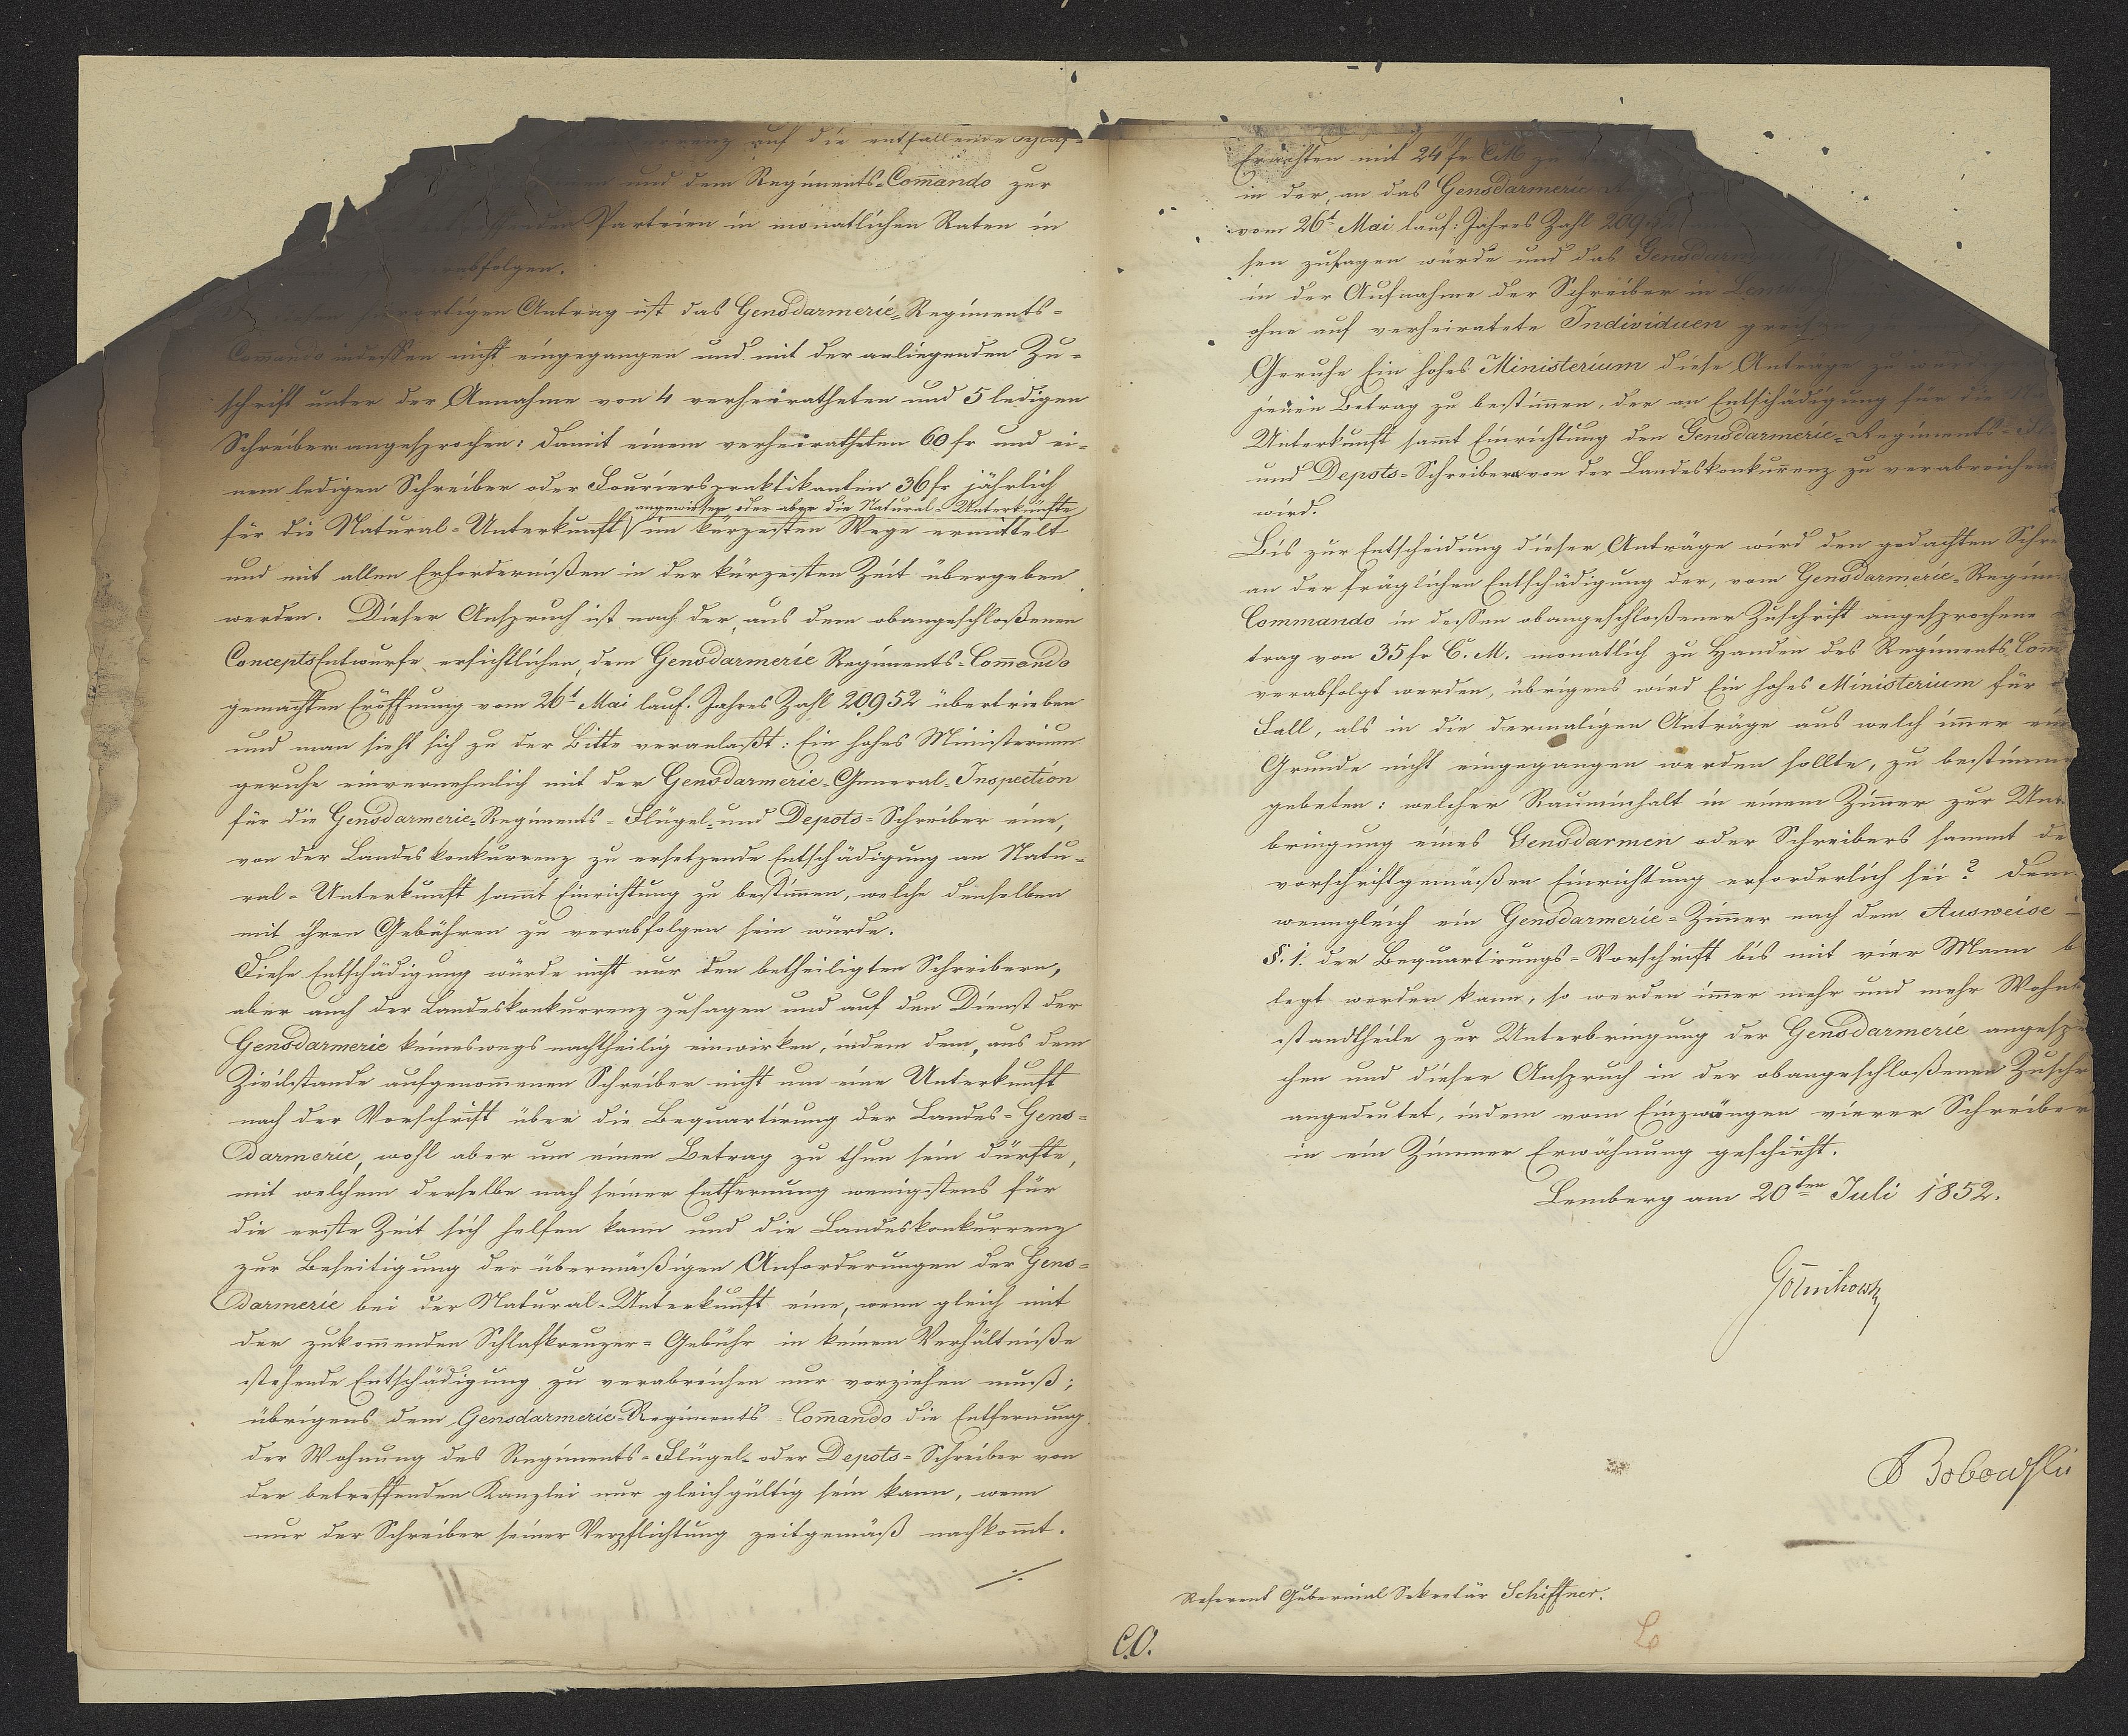 auf die entfallende
und dem Regiments-Com̄ando zur
Parteien in monatlichen Raten in
verabfolgen.
Antrag ist das Gensdarmerie-Regiments-
Comando indessen nicht eingegangen und mit der anliegenden Zu-
schrift unter der Annahme von 4 verheiratheten und 5 ledigen
Schreiber angesprochen: damit einem verheiratheten 60 fr und ei-
nem ledigen Schreiber oder Fourierspraktikanten 36 fr jährlich
angewiesen oder aber die Natural-Unterkünfte
für die Natural-Unterkunft im kürzesten Wege ermittelt
und mit allen Erfordernißen in der kürzesten Zeit übergeben
werden. Dieser Anspruch ist nach der, aus dem obangeschloßenen
ConceptsEntwurfe ersichtlichen, dem Gensdarmerie Regiments-Com̄ando
gemachten Eröffnung vom 26t Mai lauf. Jahres Zahl 20952 übertrieben
und man sieht sich zu der Bitte veranlaßt: Ein hohes Ministerium
geruhe einvernehmlich mit der Gensdarmerie-General-Inspection
für die Gensdarmerie-Regiments-Flügel-und Depots-Schreiber eine,
von der Landeskonkurrenz zu ersetzende Entschädigung an Natu-
ral-Unterkunft sam̄t Einrichtung zu bestim̄en, welche denselben
mit ihren Gebühren zu verabfolgen sein würde.
Diese Entschädigung würde nicht nur den betheiligten Schreibern,
aber auch der Landeskonkurrenz zusagen und auf den Dienst der
Gensdarmerie keineswegs nachtheilig einwirken, indem dem, aus dem
Zivilstande aufgenom̄enen Schreiber nicht um eine Unterkunft
nach der Vorschrift über die Bequartirung der Landes-Gens-
darmerie, wohl aber um einen Betrag zu thun sein dürfte,
mit welchem derselbe nach seiner Entfernung wenigstens für
die erste Zeit sich helfen kann und die Landeskonkurrenz
zur Beseitigung der übermäßigen Anforderungen der Gens-
darmerie bei der Natural-Unterkunft eine, wenn gleich mit
der zukom̄enden Schlafkreuzer-Gebühr in keinem Verhältniße
stehende Entschädigung zu verabreichen nur vorziehen muß;
übrigens dem Gensdarmerie-Regiments-Com̄ando die Entfernung
der Wohnung des Regiments-Flügel-oder Depots-Schreiber von
der betreffenden Kanzlei nur gleichgültig sein kann, wenn
nur der Schreiber seiner Verpflichtung zeitgemäß nachkom̄t.
./.
Erachten mit 24 fr CM zu
in der, an das Gensdarmerie
vom 26t Mai lauf: Jahres Zahl 2095
sen zusagen würde und das Gensdarm
in der Aufnahme der Schreiber in Lem
ohne auf verheiratete Individuen
Geruhe Ein hohes Ministerium diese Anträge zu
jenen Betrag zu bestim̄en, der an Entschädigung für die
Unterkunft sam̄t Einrichtung den Gensdarmerie-Regiments-
und Depots-Schreibern von der Landeskonkurrenz zu verabreichen
wird.
Bis zur Entscheidung dieser Anträge wird den gedachten Schre
an der fräglichen Entschädigung der, vom Gensdarmerie-Regim
Commando in dessen obangeschloßener Zuschrift angesprochene
trag von 35 fr C. M. monatlich zu Handen des Regiments Com̄
verabfolgt werden, übrigens wird Ein hohes Ministerium für
Fall, als in die dermaligen Anträge aus welch im̄er ein
Grunde nicht eingegangen werden sollte, zu bestimme
gebeten: welcher Rauminhalt in einem Zim̄er zur Unt
bringung eines Gensdarmen oder Schreibers sammt de
vorschriftgemäßen Einrichtung erforderlich sei? denn
wenngleich ein Gensdarmerie-Zim̄er nach dem Ausweise
§. 1. der Bequartirungs-Vorschrift bis mit vier Mann b
legt werden kann, so werden im̄er mehr und mehr Wohn
standtheile zur Unterbringung der Gensdarmerie angesp
chen und dieser Anspruch in der obangeschloßenen Zuschr
angedeutet, indem vom Einzwängen vierer Schreiber
in ein Zimmer Erwähnung geschieht.
Lemberg am 20ten Juli 1852.
Referent Gubernial Sekretär Schiffner.
C.O.